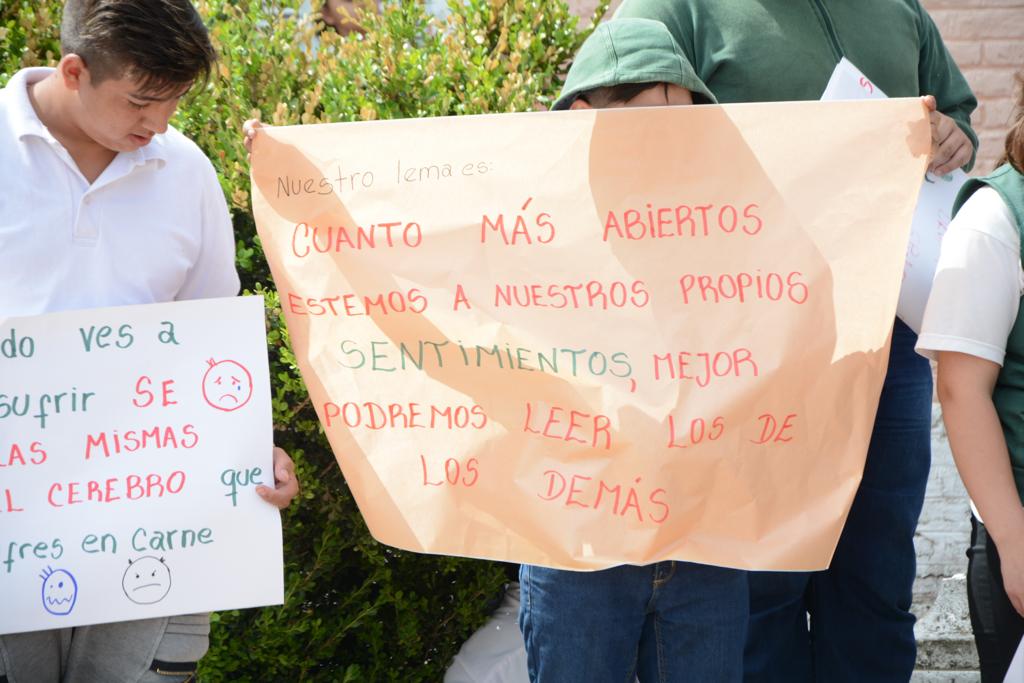 Nuestro lema es:
CUANTO MÁS ABIERTOS
ESTEMOS A NUESTROS PROPIOS
SENTIMIENTOS, MEJOR
PODREMOS LEER LOS DE
LOS DEMÁS
do ves a
sufrir SE
LAS MISMAS
L CEREBRO que
fres en carne